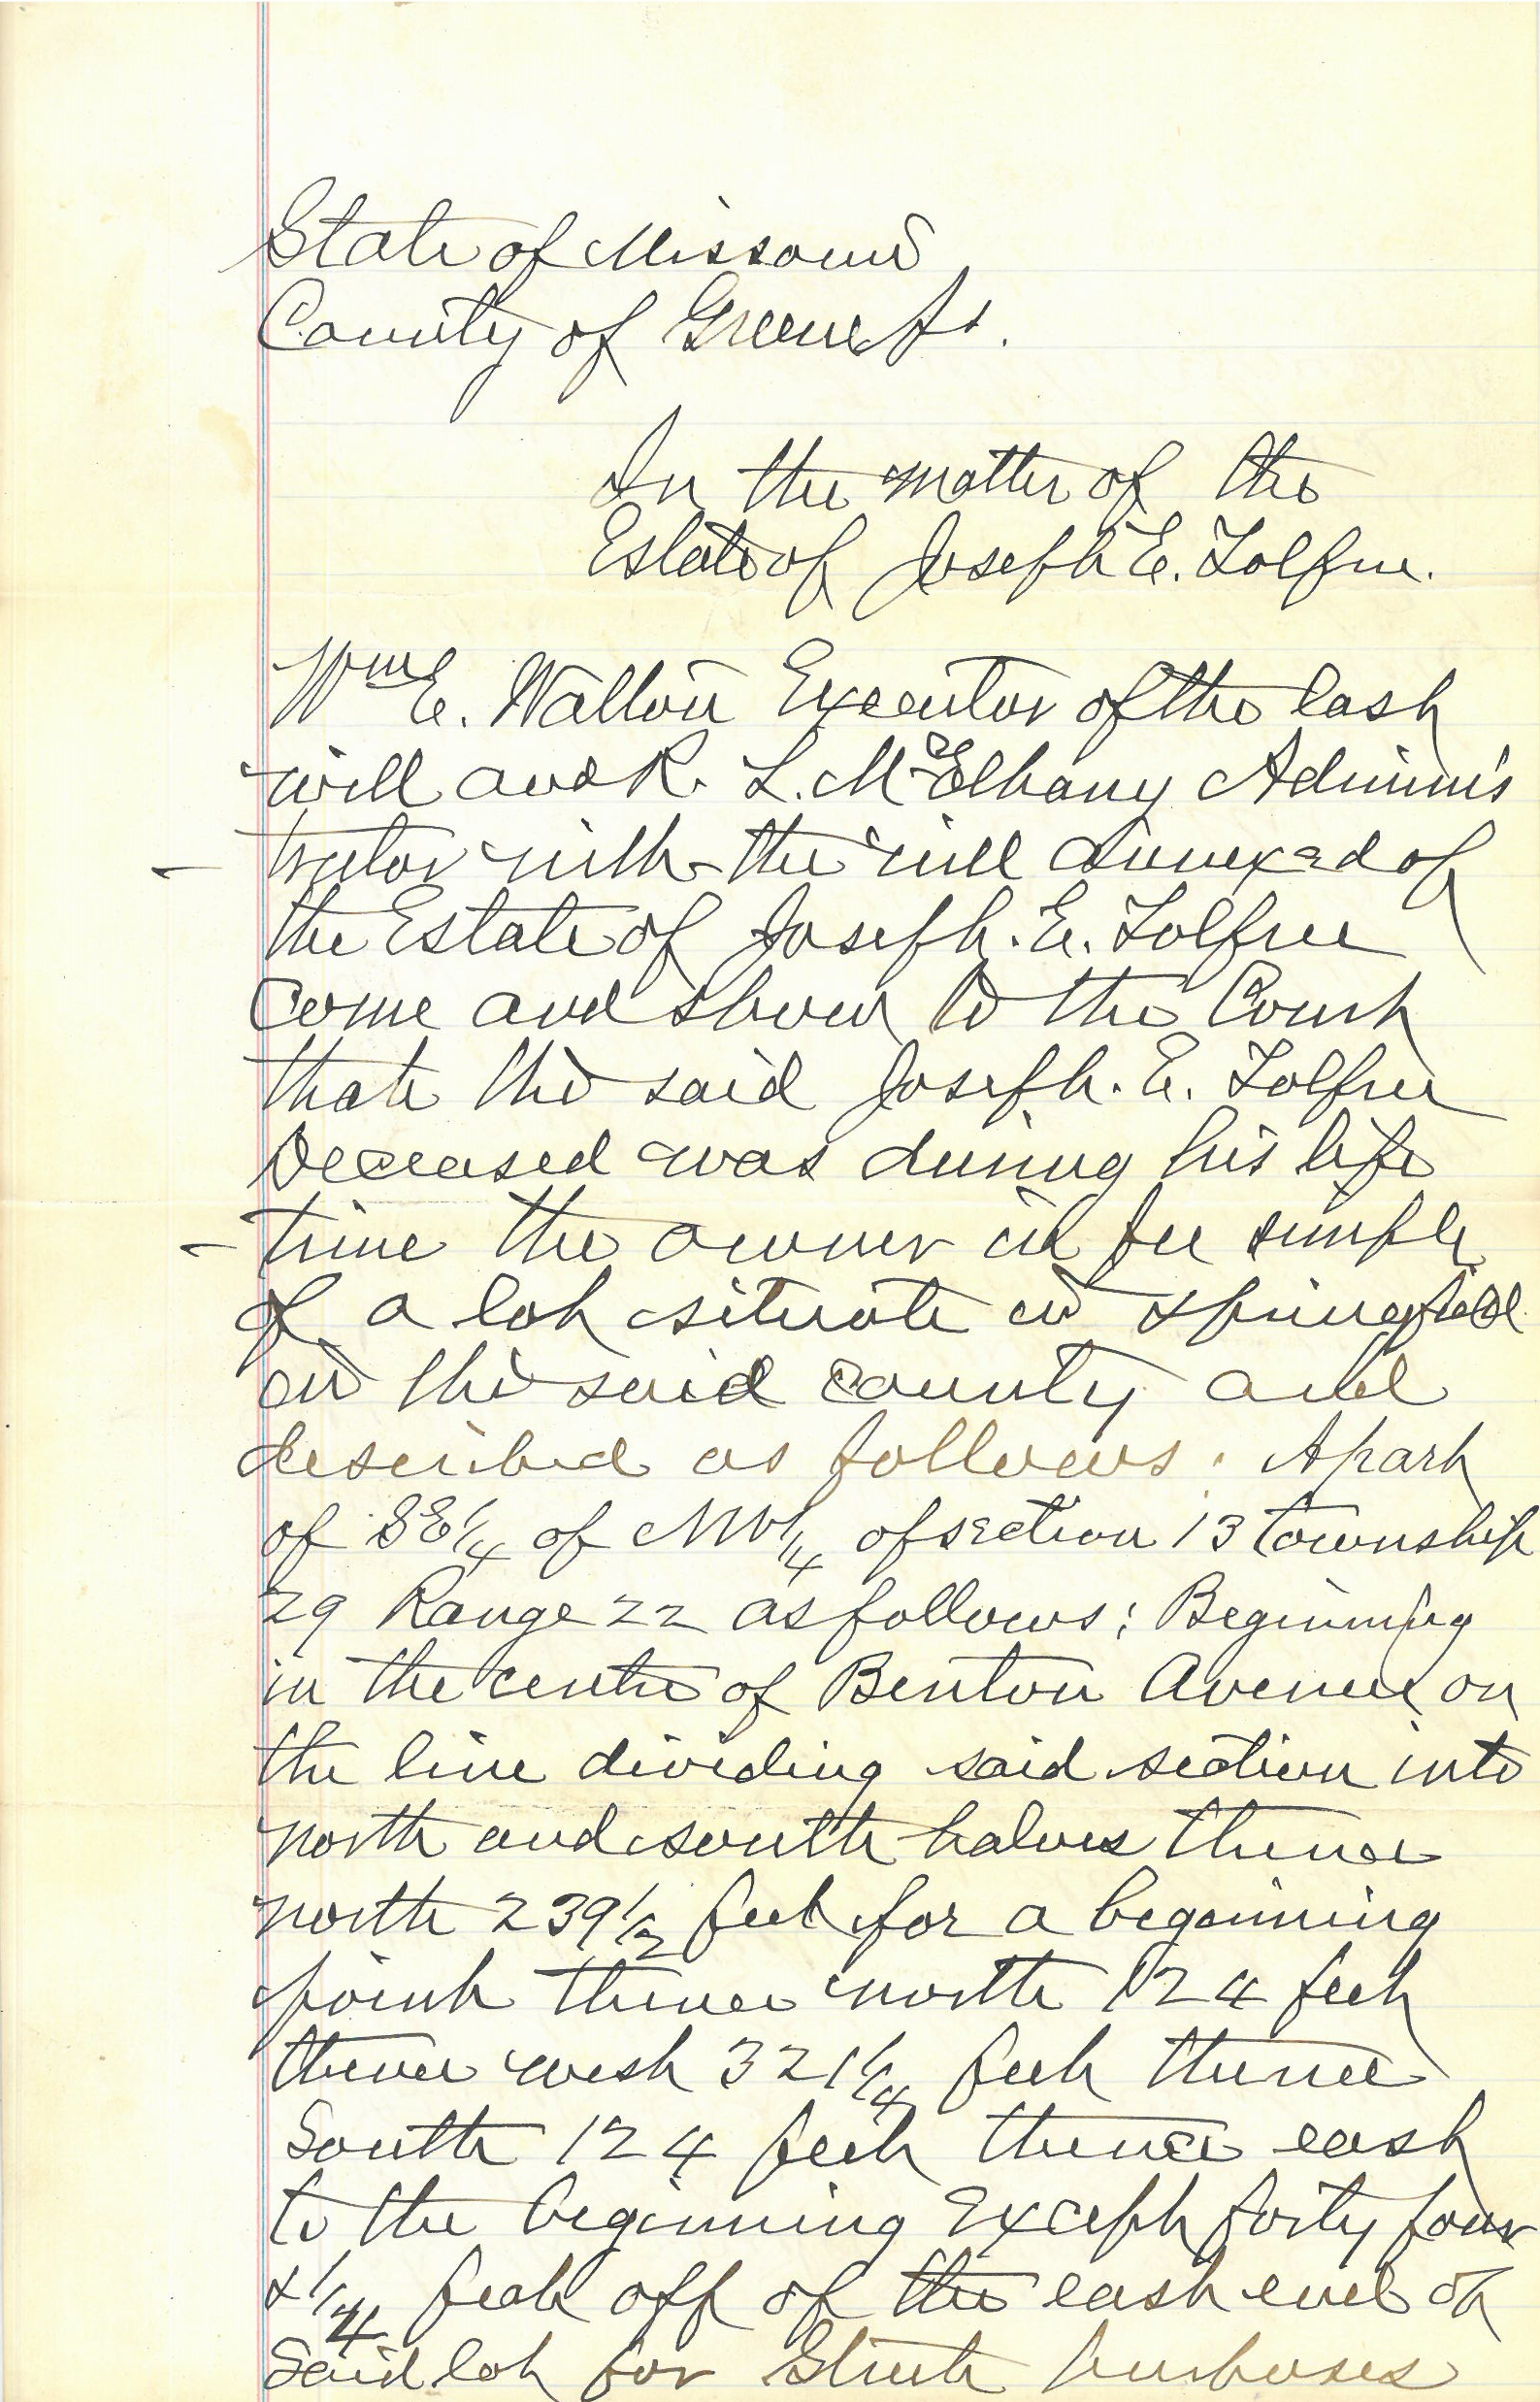 State of Missouri
County of Greene Ss.
In the matter of the
Estate of Joseph E. Tolfree.
Wm E. Walton Executor of the last
will and R. L. McElhany Adminis
trator with the will annexed of
the Estate of Joseph. E. Tolfree
Come and show to the Court
that the said Joseph. E. Tolfree
Deceased was during his life
time the owner in fee simple
of a lot situate in Springfield
in the said county and
described as follows. A part
of SE 1/4 of NW 1/4 of section 13 township
29 Range 22 as follows; Beginning
in the centre of Benton Avenue on
the line dividing said section into
north and south halves thence
north 239 1/2 feet for a beginning
point thence north 124 feet
thence west 321 1/4 feet thence
South 124 feet thence east
to the beginning Except forty four
& 1/4 feet off of the east end of
said lot for Street purposes